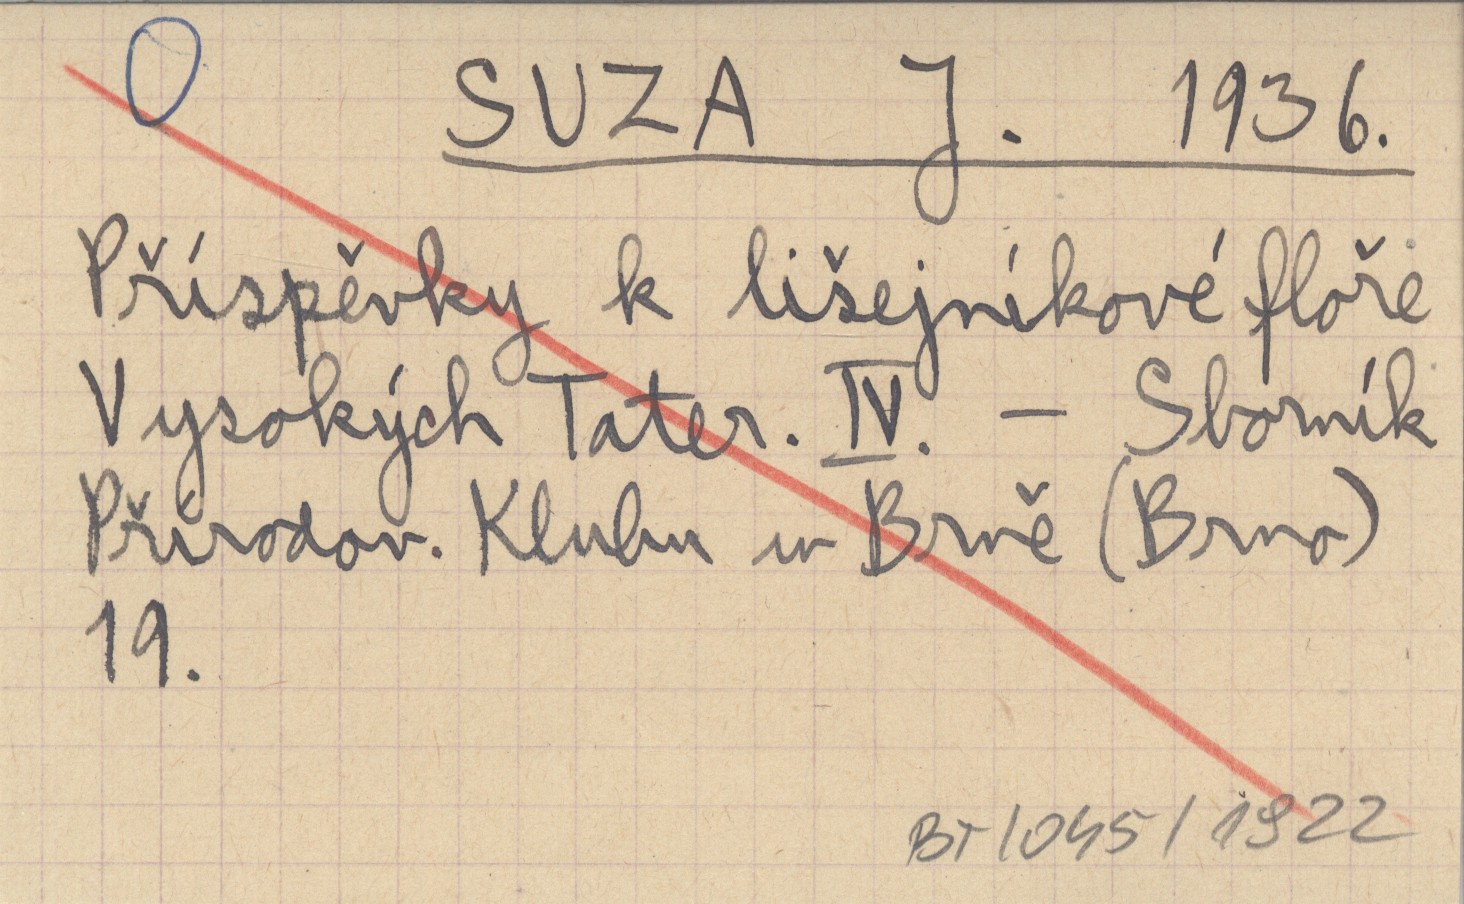 SUZA J. 1936.
Příspěvky k lišejníkové floře
Vysokých Tater. IV. – Sborník
Přírodov. Klubu w Brně (Brno)
19.
BT/045/1922